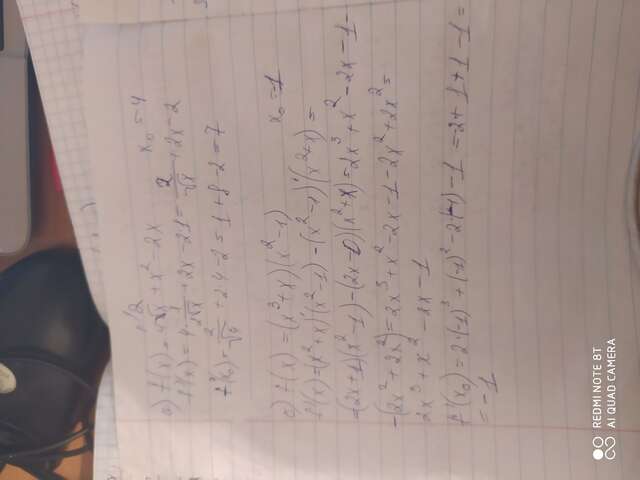 №2
a) f(x) = 4√x + x² - 2x x₀ = 4
f'(x) = 4 · 1/2√x + 2x - 2·1 = 2/√x + 2x - 2
f'(x₀) = 2/√4 + 2·4 - 2 = 1 + 8 - 2 = 7
c) f(x) = (x³ + x)(x² - 1) x₀ = -1
f'(x) = (x² + x)'(x² - 1) - (x² - 1)'(x² + x) =
= (2x + 1)(x² - 1) - (2x - 0)(x² + x) = 2x³ + x² - 2x - 1 -
- (2x² + 2x²) = 2x³ + x² - 2x - 1 - 2x² + 2x² =
2x³ + x² - 2x - 1
f'(x₀) = 2·(-1)³ + (-1)² - 2·(-1) - 1 = -2 + 1 + 1 - 1 =
= -1
REDMI NOTE 8T
AI QUAD CAMERA